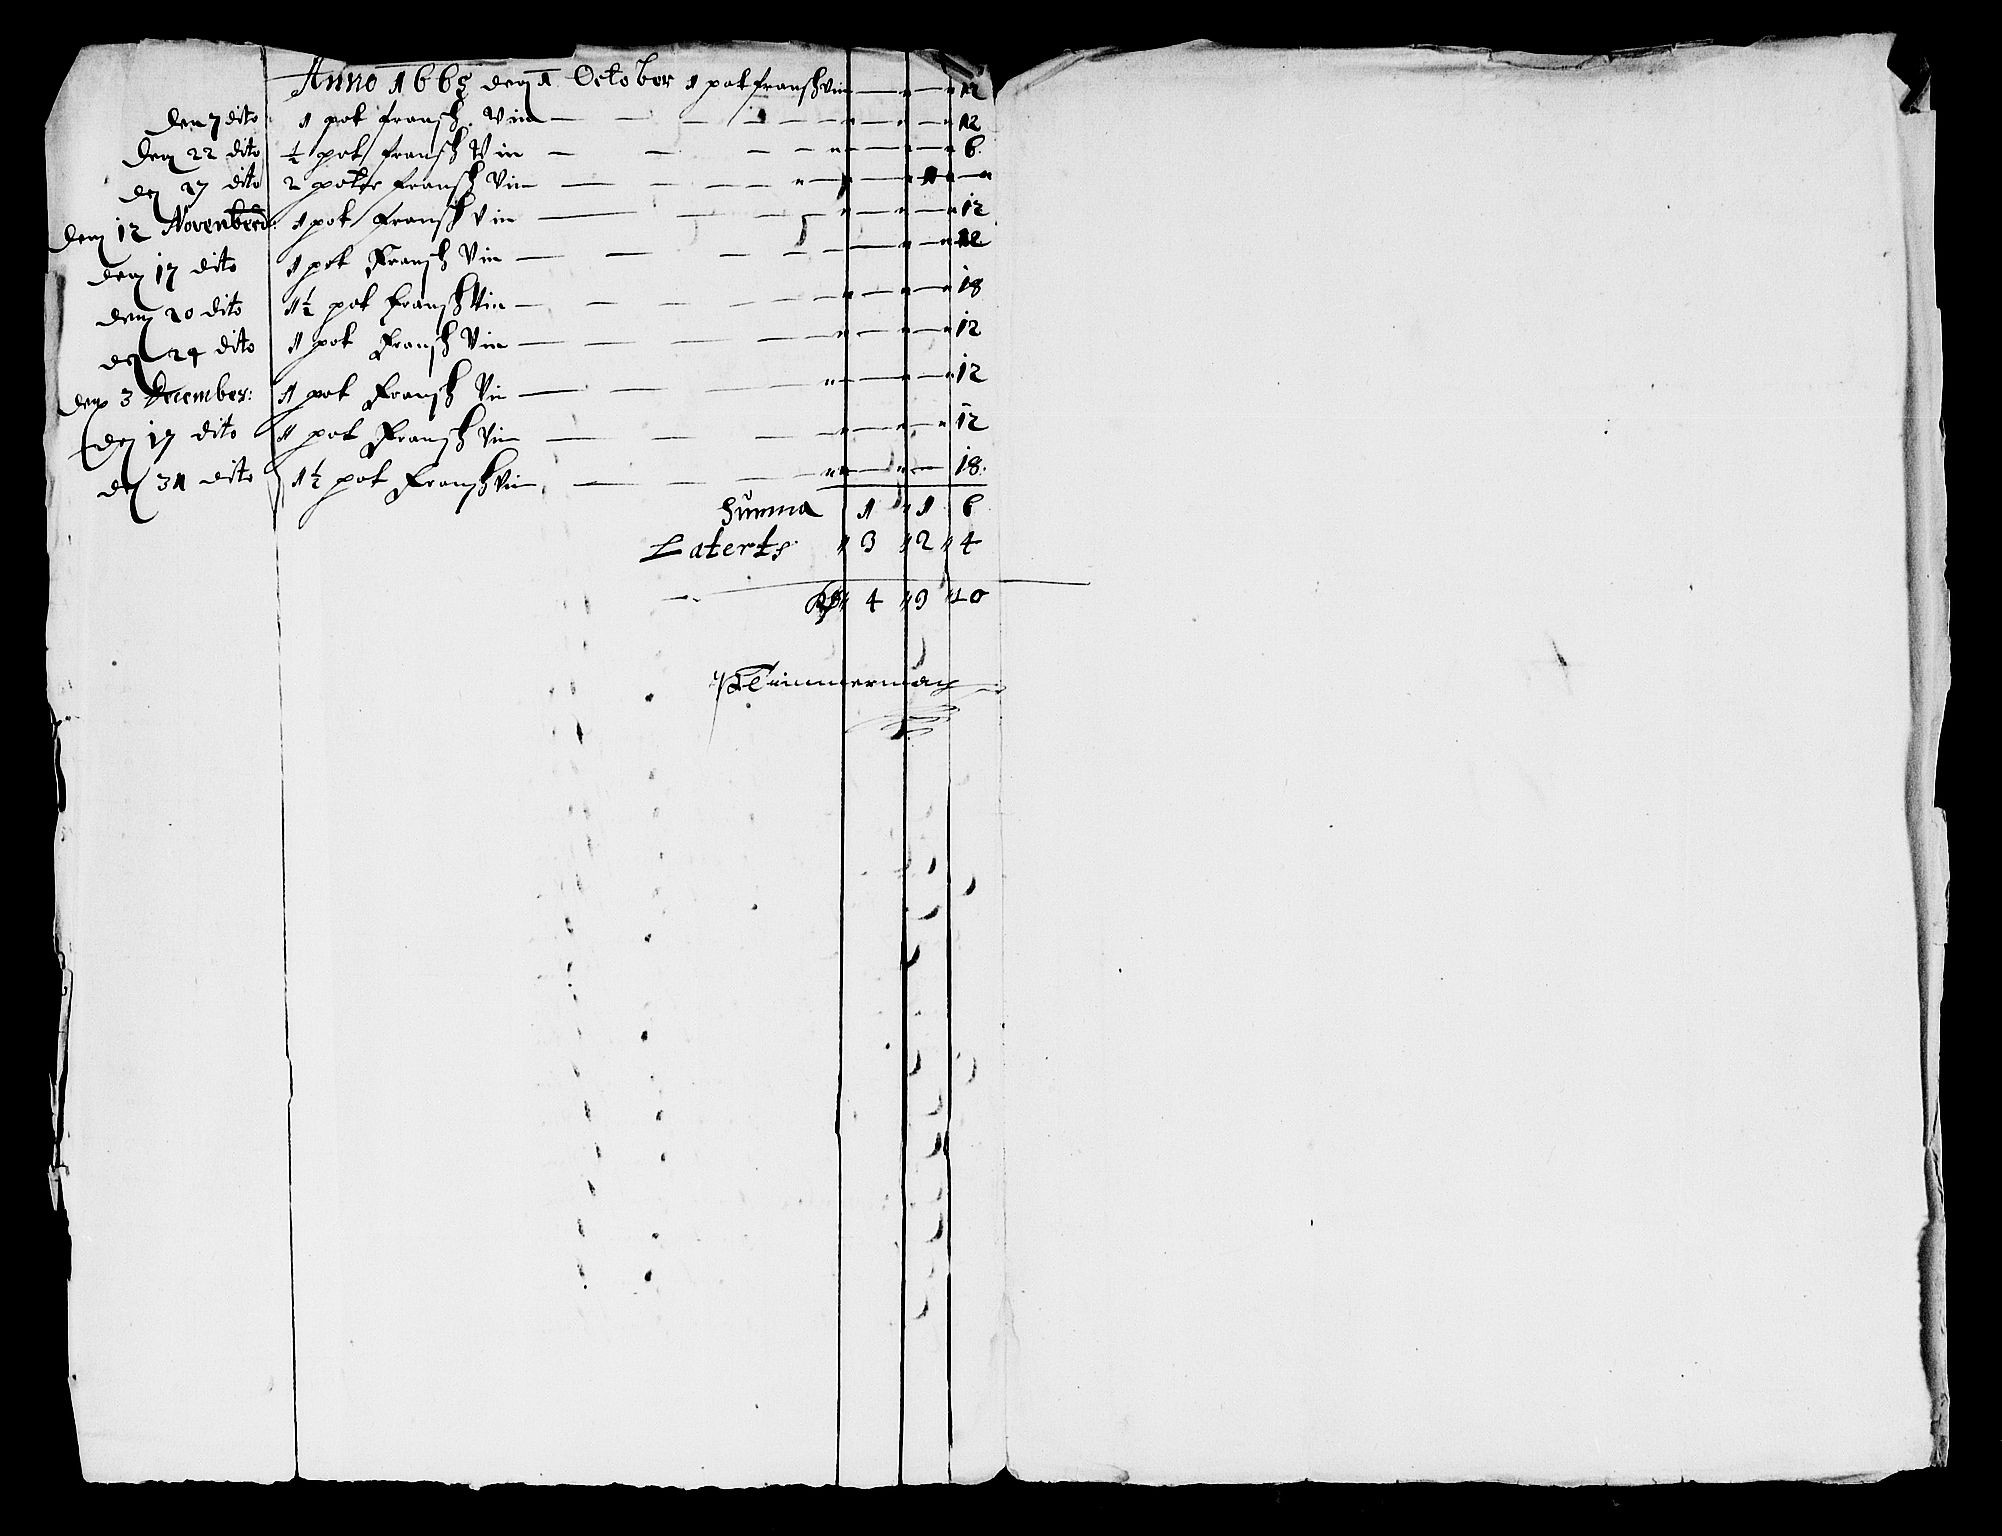 Anno 1665 den 1 October 1 pot fransk vin — " — " 12
den 7 dito 1 pot fransk Vin — " — " — " 12
den 22 dito ½ pot fransk Vin — " — " — " 6
den 27 dito 2 potter fransk Vin — " — " 1 — "
den 12 November: 1 pot fransk vin — " — " — " 12
den 17 dito 1 pot Fransk Vin — " — " 12
den 20 dito 1½ pot fransk Vin — " — " — " 18
den 24 dito 1 pot Fransk Vin — " — " — " 12
den 3 December: 1 pot Fransk Vin — " — " — " 12
den 17 dito 1 pot Fransk Vin — " — " — " 12
den 31 dito 1½ pot Fransk Vin — " — " — 18
Summa 1 " 1 6
Laterts " 3 " 2 " 4
" 4 " 3 " 10
Timmerman